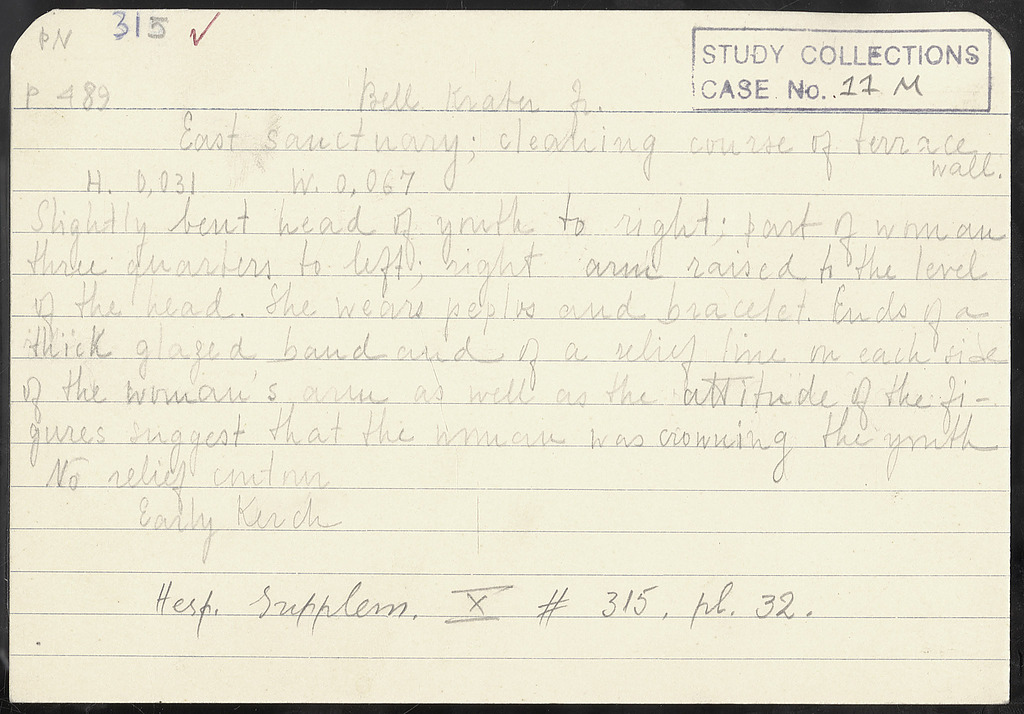 PN 315 ✓
STUDY COLLECTIONS
CASE No. 17 M
P 489 Bell Krater Fr.
East Sanctuary; cleaning course of terrace
wall.
H. 0,031 W. 0,067
Slightly bent head of youth to right; part of woman
three quarters to left; right arm raised to the level
of the head. She wears peplos and bracelet. Ends of a
thick glazed band and of a relief line on each side
of the woman's arm as well as the attitude of the fi-
gures suggest that the woman was crowning the youth
No relief contour
Early Kerch
Hesp. Supplem. X # 315, pl. 32.